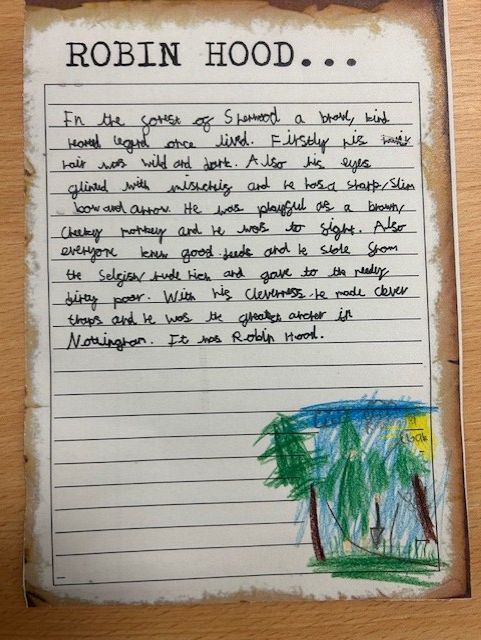 ROBIN HOOD...
In the forest of Sherwood a brave, kind
hearted legend once lived. Firstly his hair
hair was wild and dark. Also his eyes
glinted with mischif and he has a sharp/slim
bow and arrow. He was playful as a brown/
cheeky monkey and he was to sight. Also
everyone knew good deeds and he stole from
the selgish/rude rich and gave to the needy
dirty poor. With his cleverness he made clever
traps and he was the greatest archer in
Nottingham. It was Robin Hood.